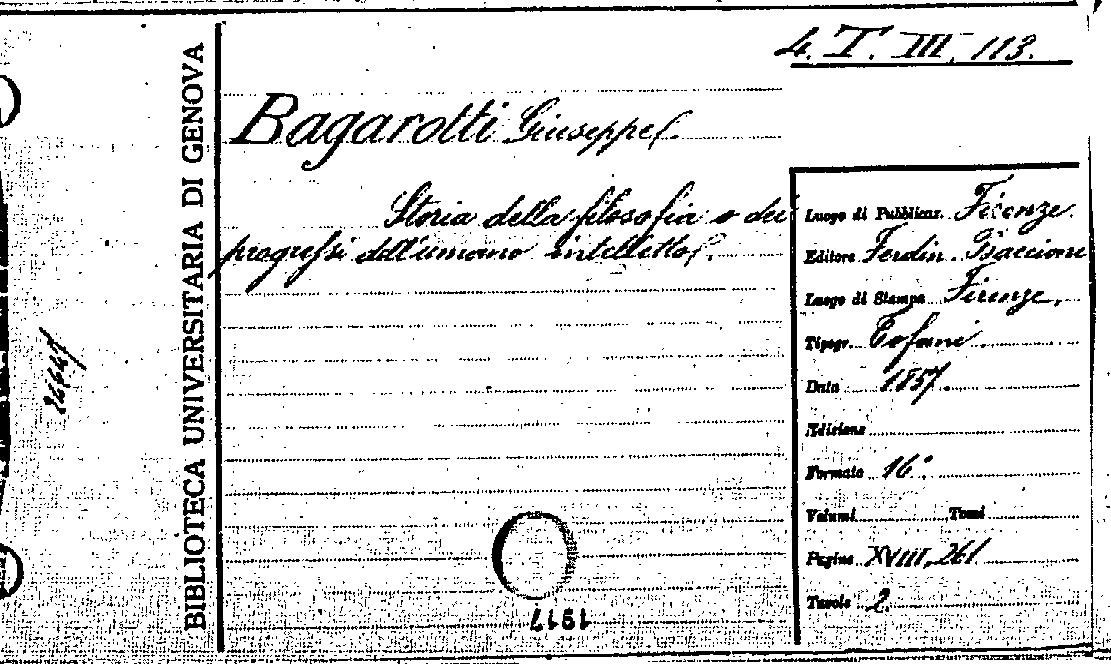 4. T. III. 113.
BIBLIOTECA UNIVERSITARIA DI GENOVA
Bagarotti Giuseppe.
Storia della filosofia o dei
progressi dell'umano intelletto.
Luogo di Pubblicaz. Firenze.
Editore Ferdin.
Luogo di Stampa Firenze.
Tipogr. Tofani
Data 1857.
Edizione
Formato 16.°
Volumi Tomi
Pagine XVIII, 261
Tavole 2.